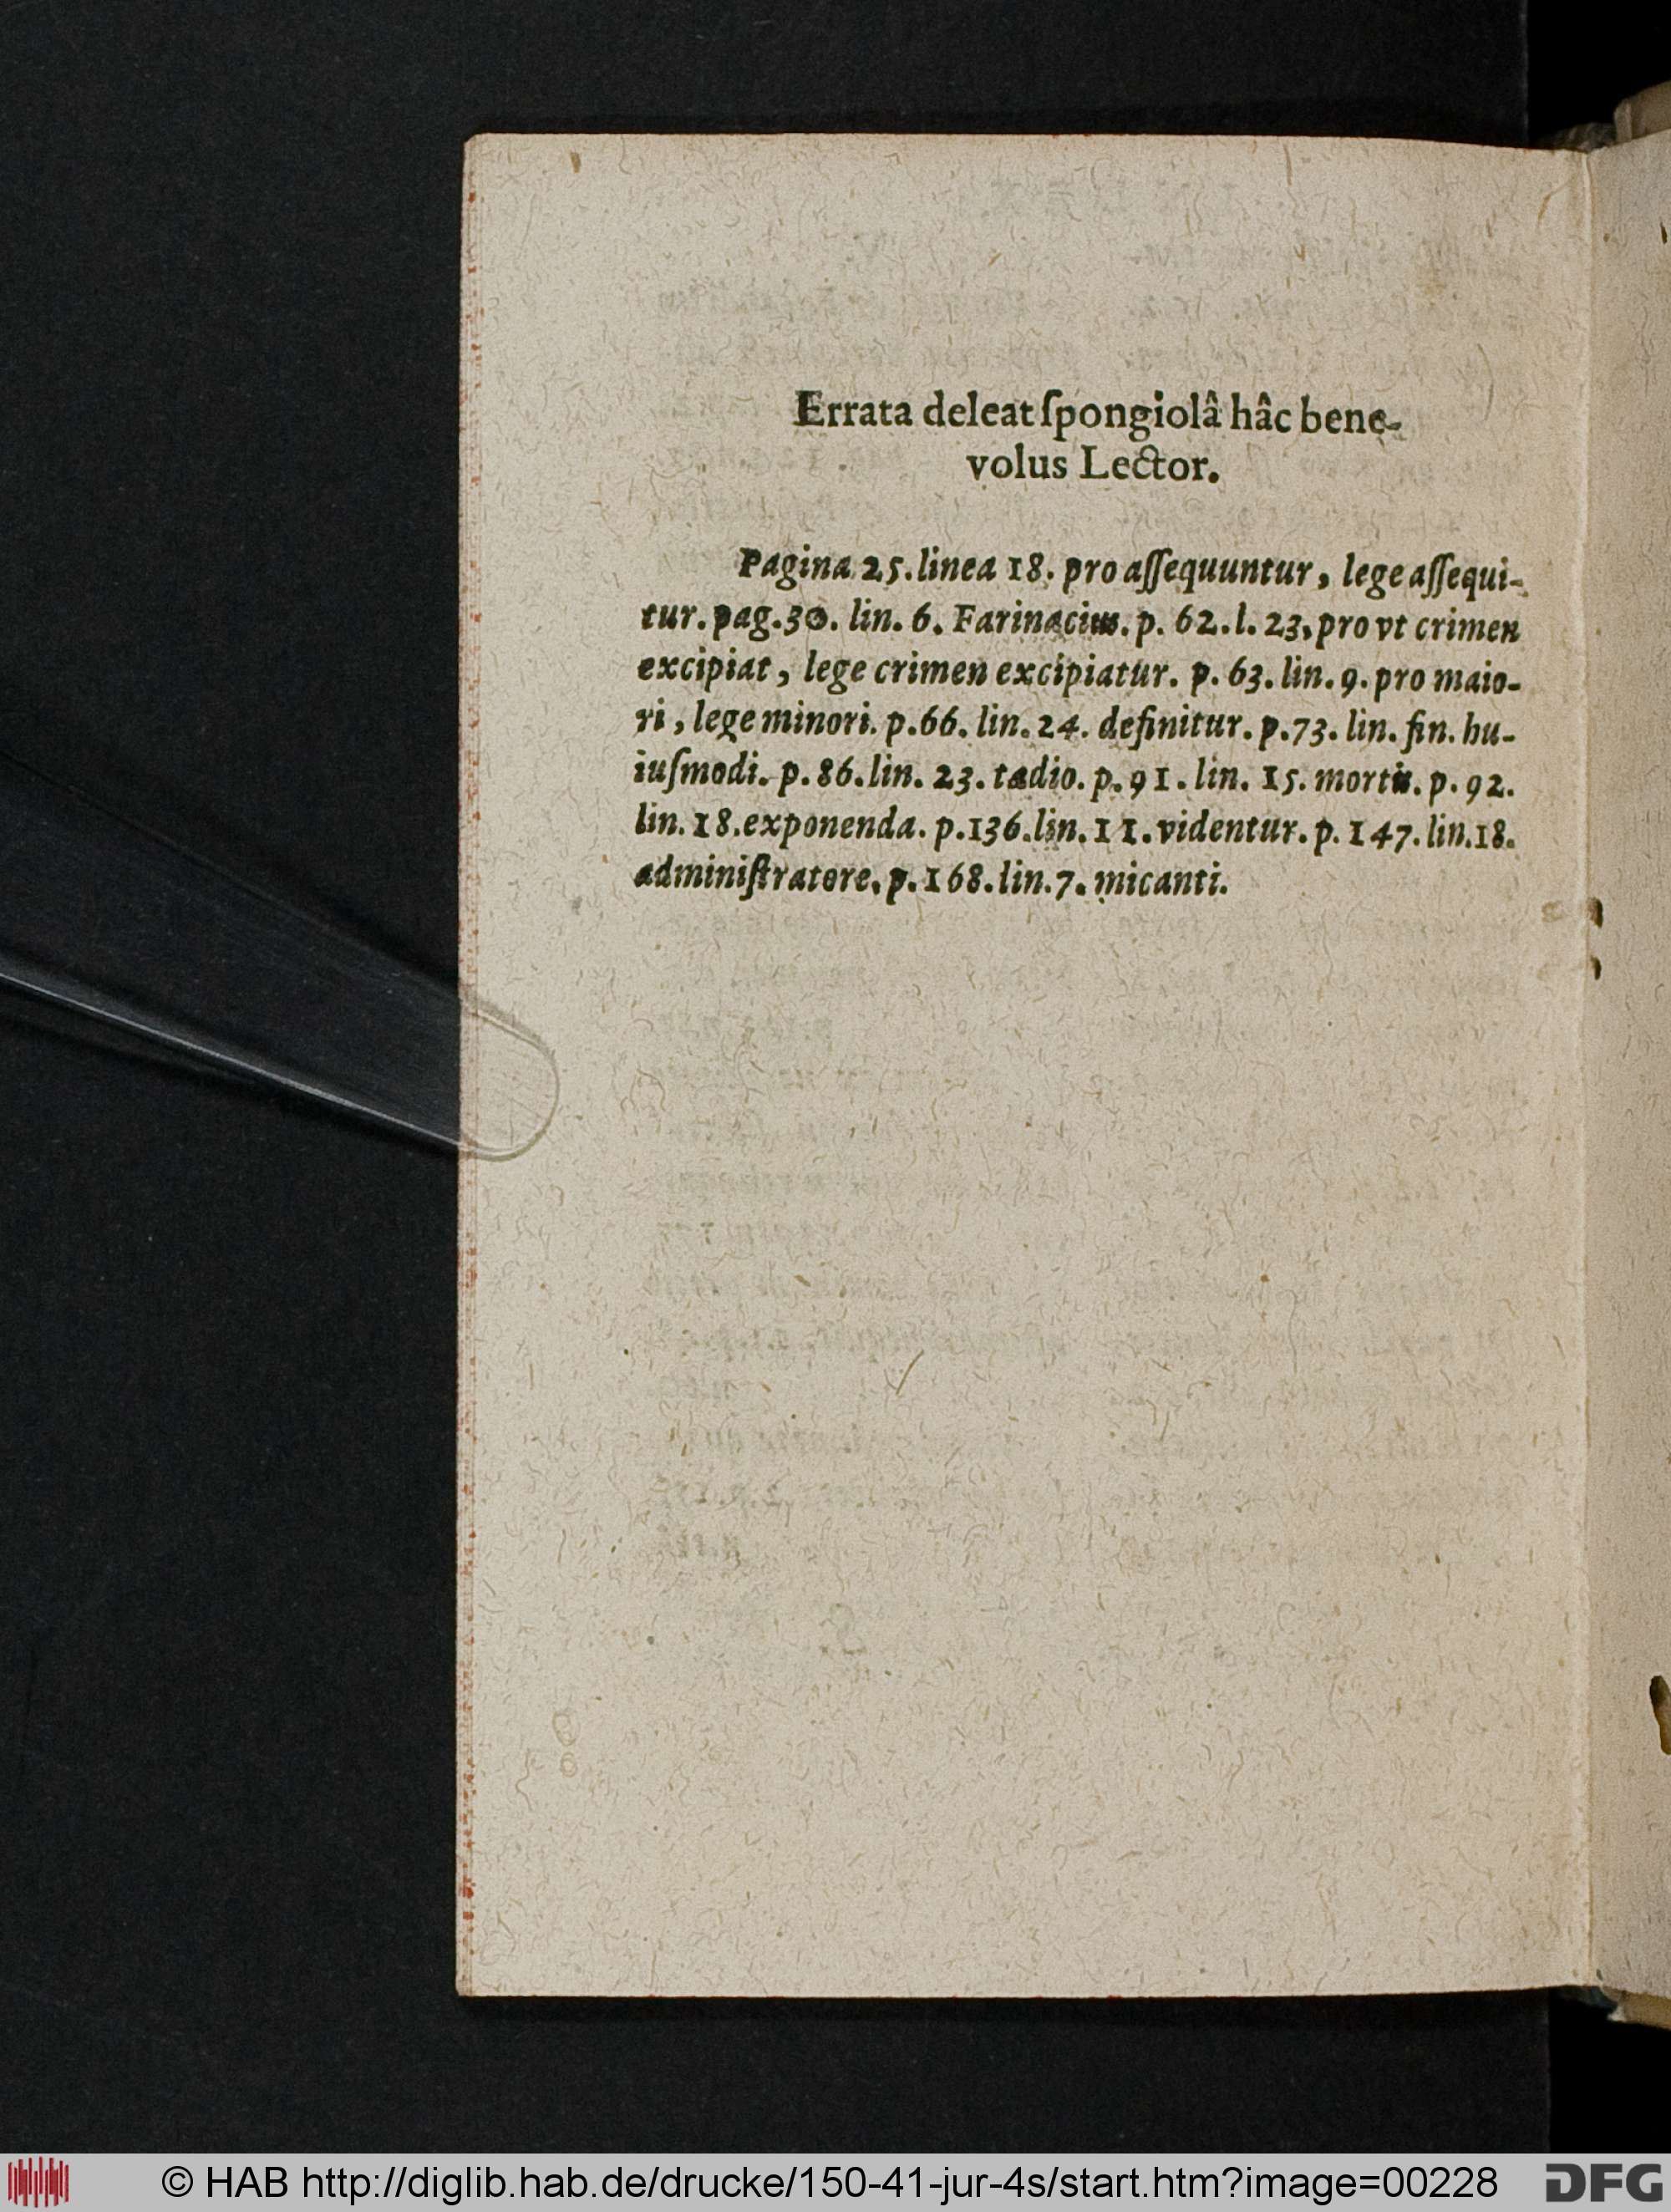 Errata deleat ſpongiolâ hâc bene-
volus Lector.
Pagina 25. linea 18. pro aſſequuntur, lege aſſequi-
tur. pag. 30. lin. 6. Farinacius. p. 62. l. 23. pro vt crimen
excipiat, lege crimen excipiatur. p. 63. lin. 9. pro maio-
ri, lege minori. p. 66. lin. 24. definitur. p. 73. lin. fin. hu-
iuſmodi. p. 86. lin. 23. tædio. p. 91. lin. 15. p. 92.
lin. 18. exponenda. p. 136. lin. 11. videntur. p. 147. lin. 18.
adminiſtratore. p. 168. lin. 7. micanti.
© HAB http://diglib.hab.de/drucke/150-41-jur-4s/start.htm?image=00228
DFG